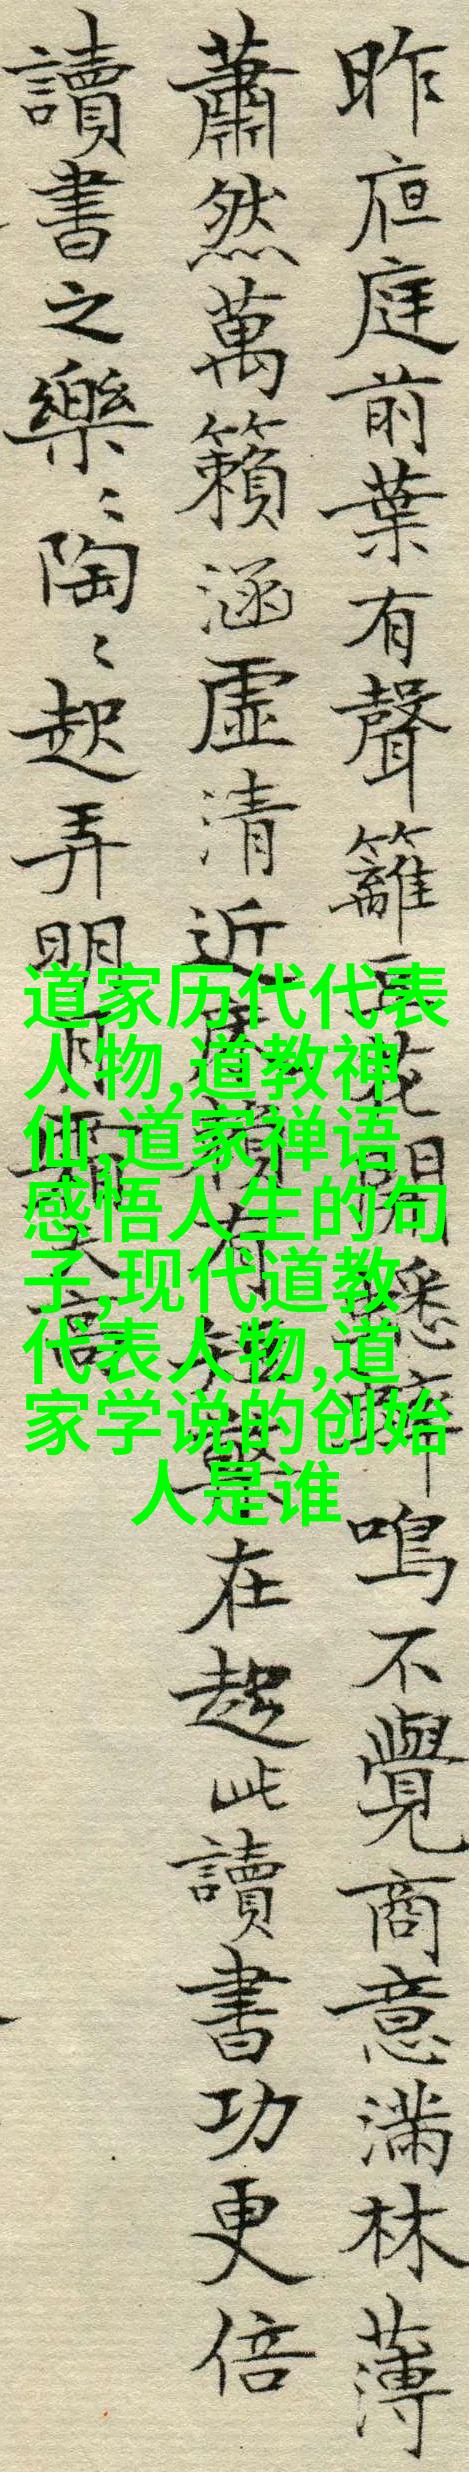 昨夜庭前葉有聲籬豆花開蟋蟀鳴不覺商意滿林薄
蕭然萬籟涵虛清近床賴有短檠在趂此讀書功更倍
讀書之樂〻陶〻起弄明月霜天高
道家历代代表
人物,道教神
仙,道家禅语
感悟人生的句
子,现代道教
代表人物,道
家学说的创始
人是谁